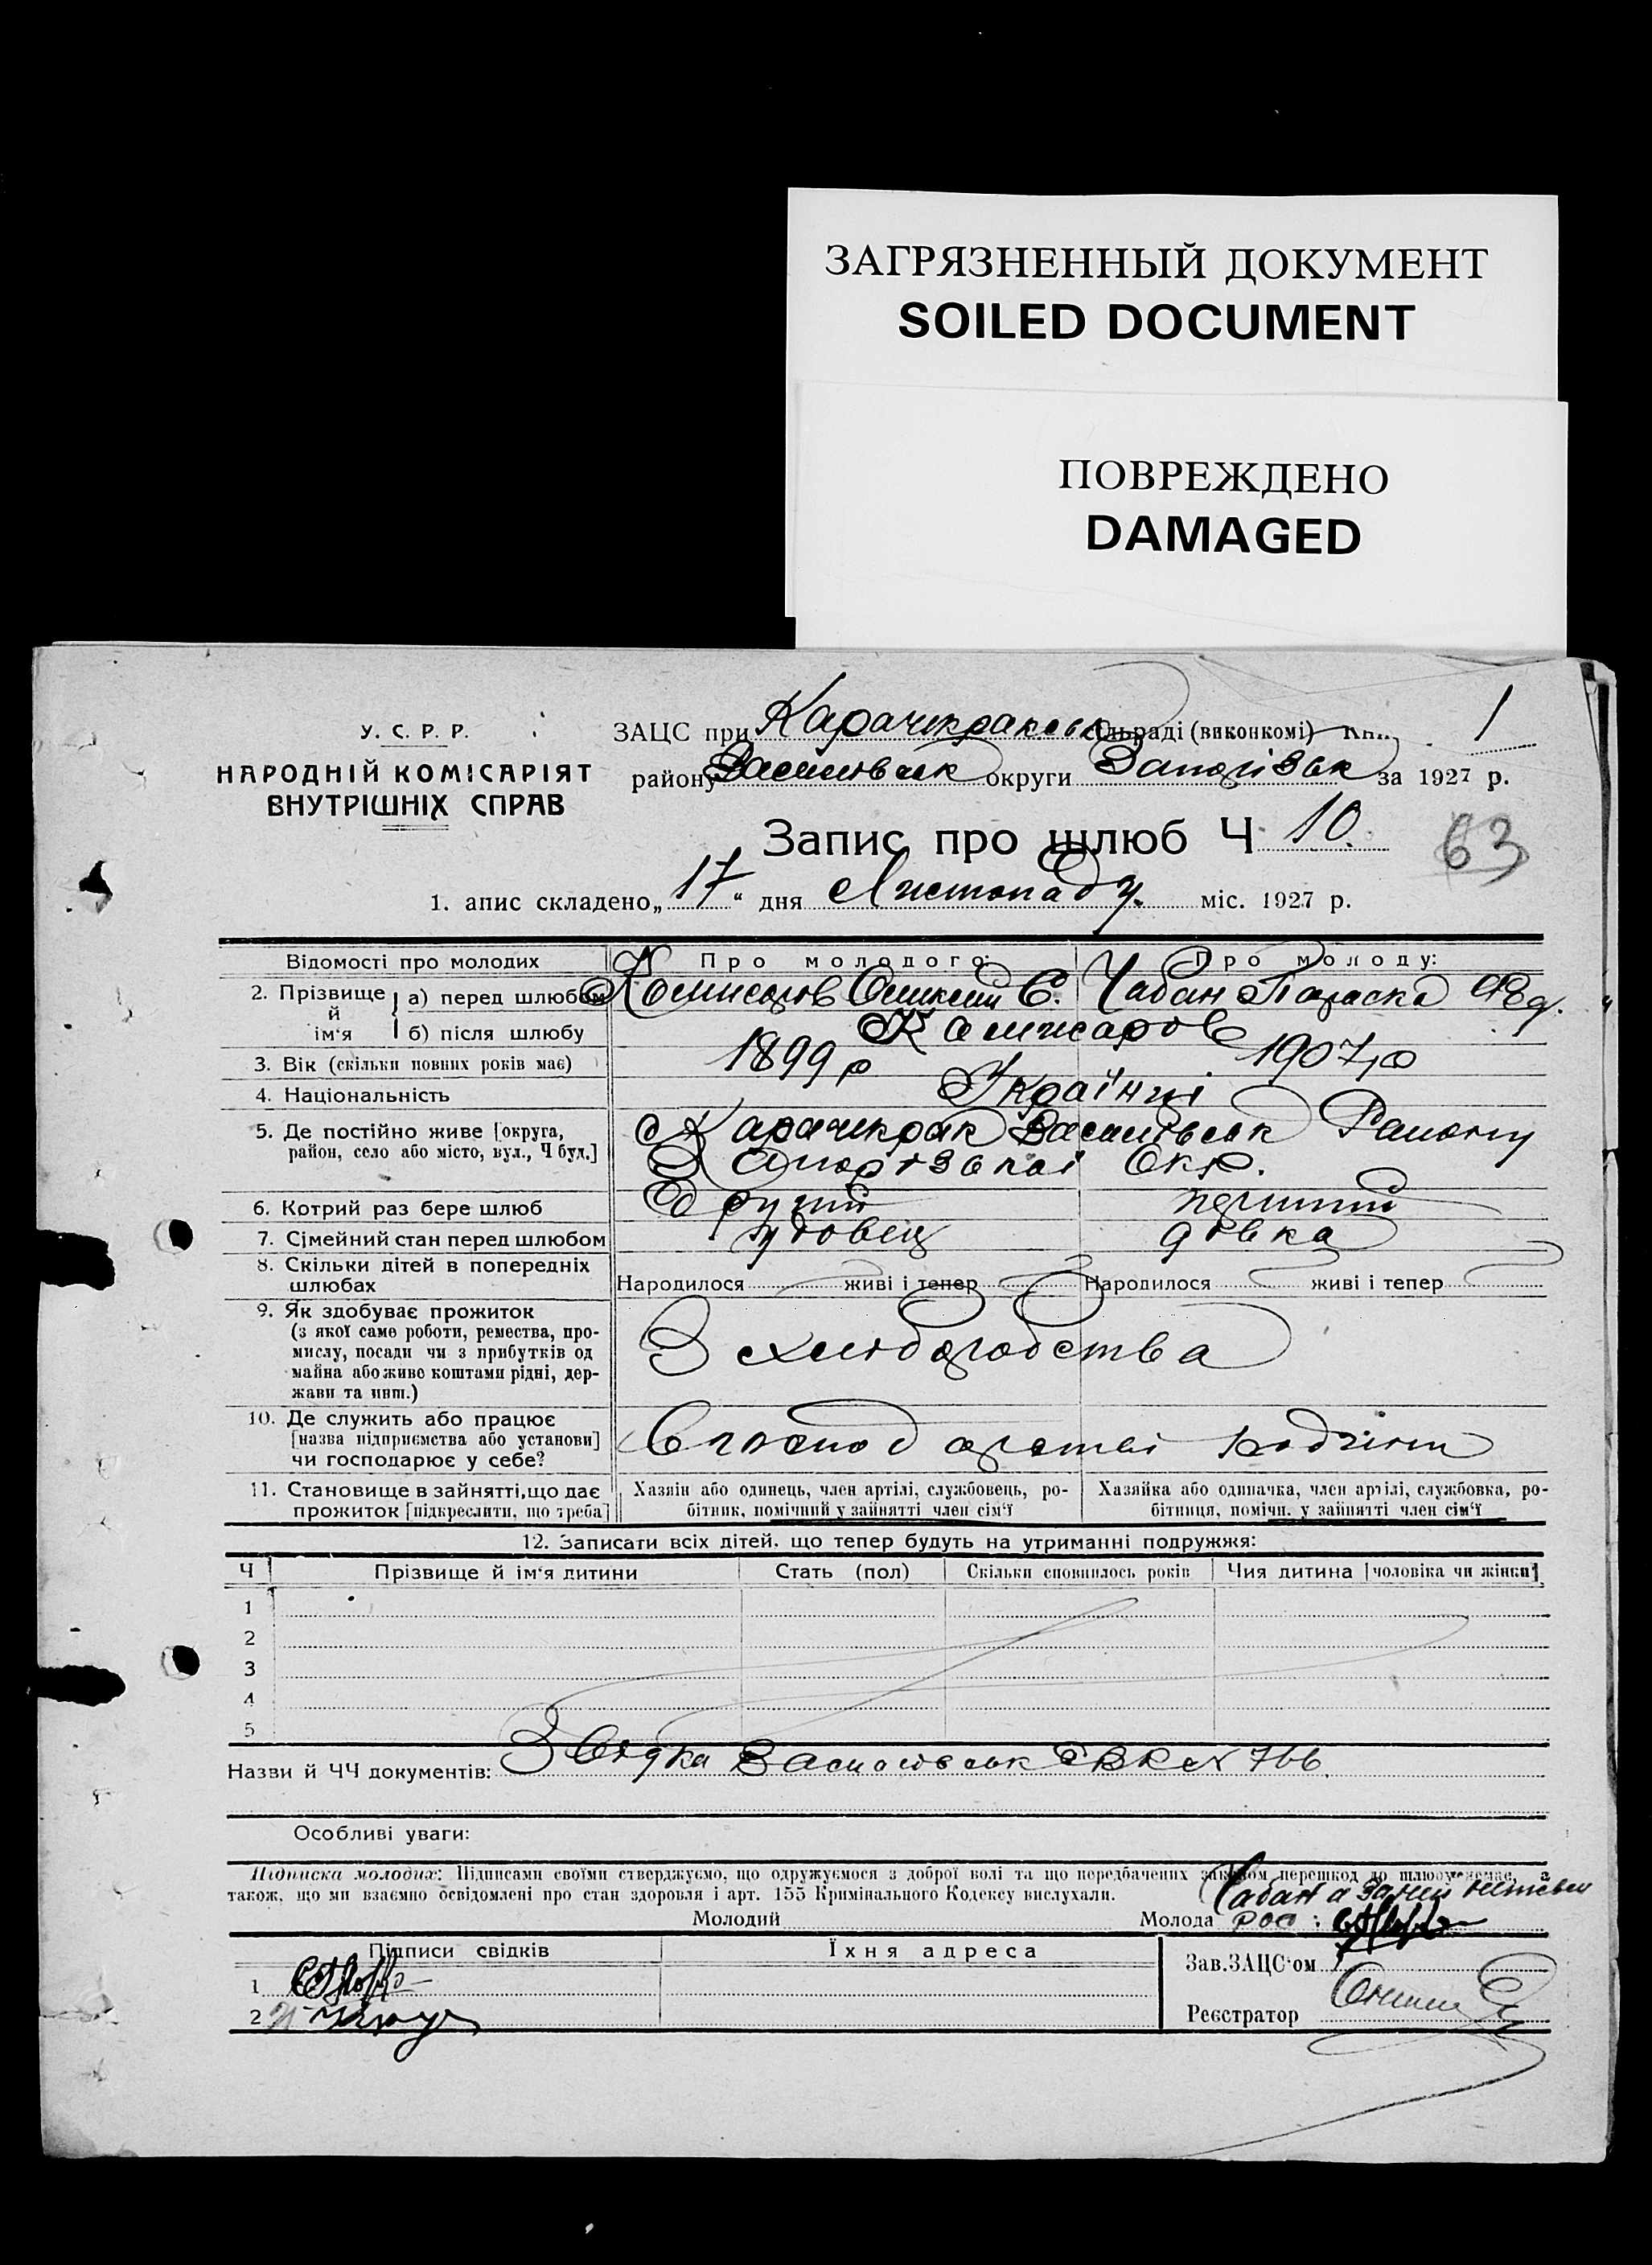 ЗАГРЯЗНЕННЫЙ ДОКУМЕНТ
SOILED DOCUMENT
ПОВРЕЖДЕНО
DAMAGED
У. С. Р. Р.
НАРОДНІЙ КОМІСАРІЯТ
ВНУТРІШНІХ СПРАВ
ЗАЦС при Карачекракськ сільраді (виконкомі) Кни. 1
району Василівськ округи Запорізьк за 1927 р.
Запис про шлюб Ч 10.
63
1. апис складено „17“ дня Листопаду. міс. 1927 р.
Відомості про молодих Про молодого: Про молоду:
2. Прізвище й ім‘я а) перед шлюбом Комисаров С. Чабан Параска
б) після шлюбу Комисаров
3. Вік (скільки повних років має) 1899 р 1907 р
4. Національність Українці
5. Де постійно живе [округа, район, село або місто, вул., Ч буд.] с Карачекрак Василівськ Району
Запорізької Окр.
6. Котрий раз бере шлюб Другий перший
7. Сімейний стан перед шлюбом удовець дівка
8. Скільки дітей в попередніх шлюбах Народилося живі і тепер Народилося живі і тепер
9. Як здобуває прожиток
(з якої саме роботи, ремества, про-
мислу, посади чи з прибутків од
майна або живе коштами рідні, дер-
жави та инш.)
З хліборобства
10. Де служить або працює
[назва підприємства або установи]
чи господарює у себе?
В господарстві
11. Становище в зайнятті, що дає
прожиток [підкреслити, що треба]
Хазяїн або одинець, член артілі, службовець, ро-
бітник, помічний у зайнятті член сім‘ї
Хазяйка або одиначка, член артілі, службовка, ро-
бітниця, помічн. у зайнятті член сім‘ї
12. Записати всіх дітей, що тепер будуть на утриманні подружжя:
Ч Прізвище й ім‘я дитини Стать (пол) Скільки сповнилось років Чия дитина [чоловіка чи жінки]
1
2
3
4
5
Назви й ЧЧ документів: Звідка Василівськ РВК № 766.
Особливі уваги:
Підписка молодих: Підписами своїми стверджуємо, що одружуємося з доброї волі та що передбачених законом перешкод до шлюбу немає, а
також, що ми взаємно освідомлені про стан здоровля і арт. 155 Кримінального Кодексу вислухали.
Чабан а За
Молодий Молода
Підписи свідків Їхня адреса
Зав. ЗАЦС‘ом
1
Реєстратор
2